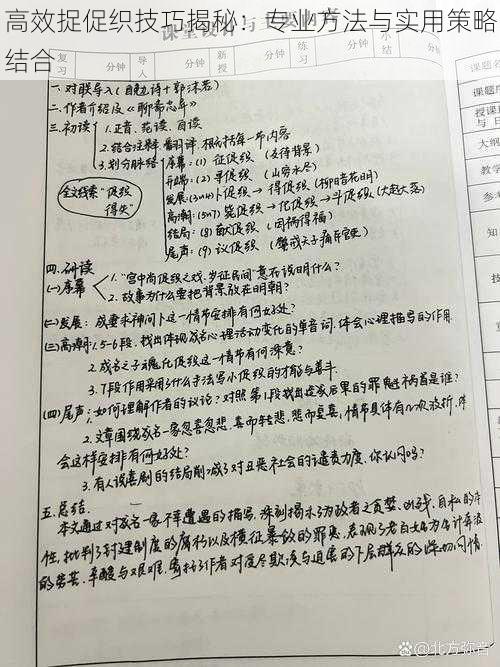 高效捉促织技巧揭秘：专业方法与实用策略
结合
复习 分钟 导入 分钟 新课 分钟 练习 分钟 小结 分钟
课题名
课题序
授课
与日
大纲
教学
参考
知
技
一、对联导入(自勉诗+郭沫若)
二、作者介绍及《聊斋志异》
三、初读 1.正音、范读、自读
2.结合注释 翻译课 根据每一节内容
3.划分脉络 序幕：(1) 征促织 (交待背景)
全文线索“促织
得失”
开端：(2) 寻促织 (山穷水尽)
发展：(3和4) 卜促织→得促织 (柳暗花明)
高潮：(5和7) 毙促织→化促织→斗促织 (大起大落)
结局：(8) 献促织 (因祸得福)
尾声：(9) 议促织
四、研读
(一)序幕 1.“宫中尚促织之戏，岁征民间”意在说明什么？
2.故事为什么要把背景放在明朝？
(二)发展：成妻求神问卜这一情节安排有何好处？
(三)高潮：1.5-6段，找出体现成名心理活动变化的单音词，体会心理描写的作用
2.成名之子魂化促织这一情节有何深意？
3.7段作用采用了什么手法写小促织的才能与善斗
(四)尾声：1.如何理解作者的议论？对照第1段找出造成后果的罪魁祸首是谁？
2.文章围绕成名一家忽喜忽悲，喜而转悲，悲而复喜，情节具体有几次波折，作者
会这样安排有何好处？
3.有人说喜剧的结局削减了对丑恶社会的谴责力度，你认同吗？
五、总结
本文通过对成名一家不幸遭遇的描写，深刻揭示了为政者之贪婪、凶残、自私的本
性，批判了封建制度的腐朽以及横征暴敛的罪恶，表现了老百姓为生计奔波
的劳苦、辛酸与艰难，寄托了作者对受尽欺凌与迫害的下层群众的深切同情
北方弥音